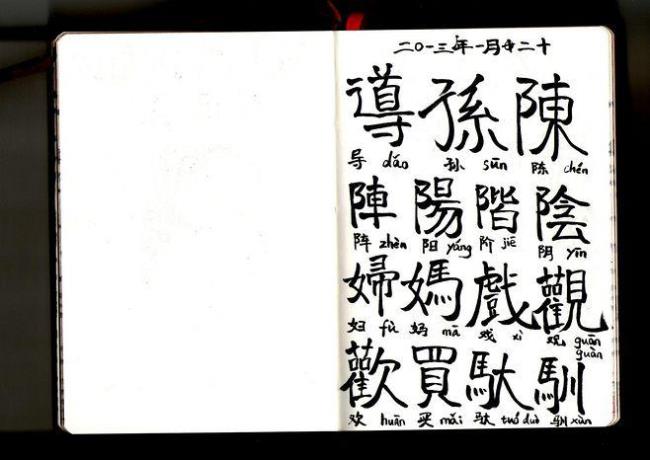 二〇一三年一月二十
導 孫 陳
导 dǎo 孙 sūn 陈 chén
陣 陽 階 陰
阵 zhèn 阳 yáng 阶 jiē 阴 yīn
婦 媽 戲 觀
妇 fù 妈 mā 戏 xì 观 guān
guàn
歡 買 馱 馴
欢 huān 买 mǎi 驮 tuó duò 驯 xùn